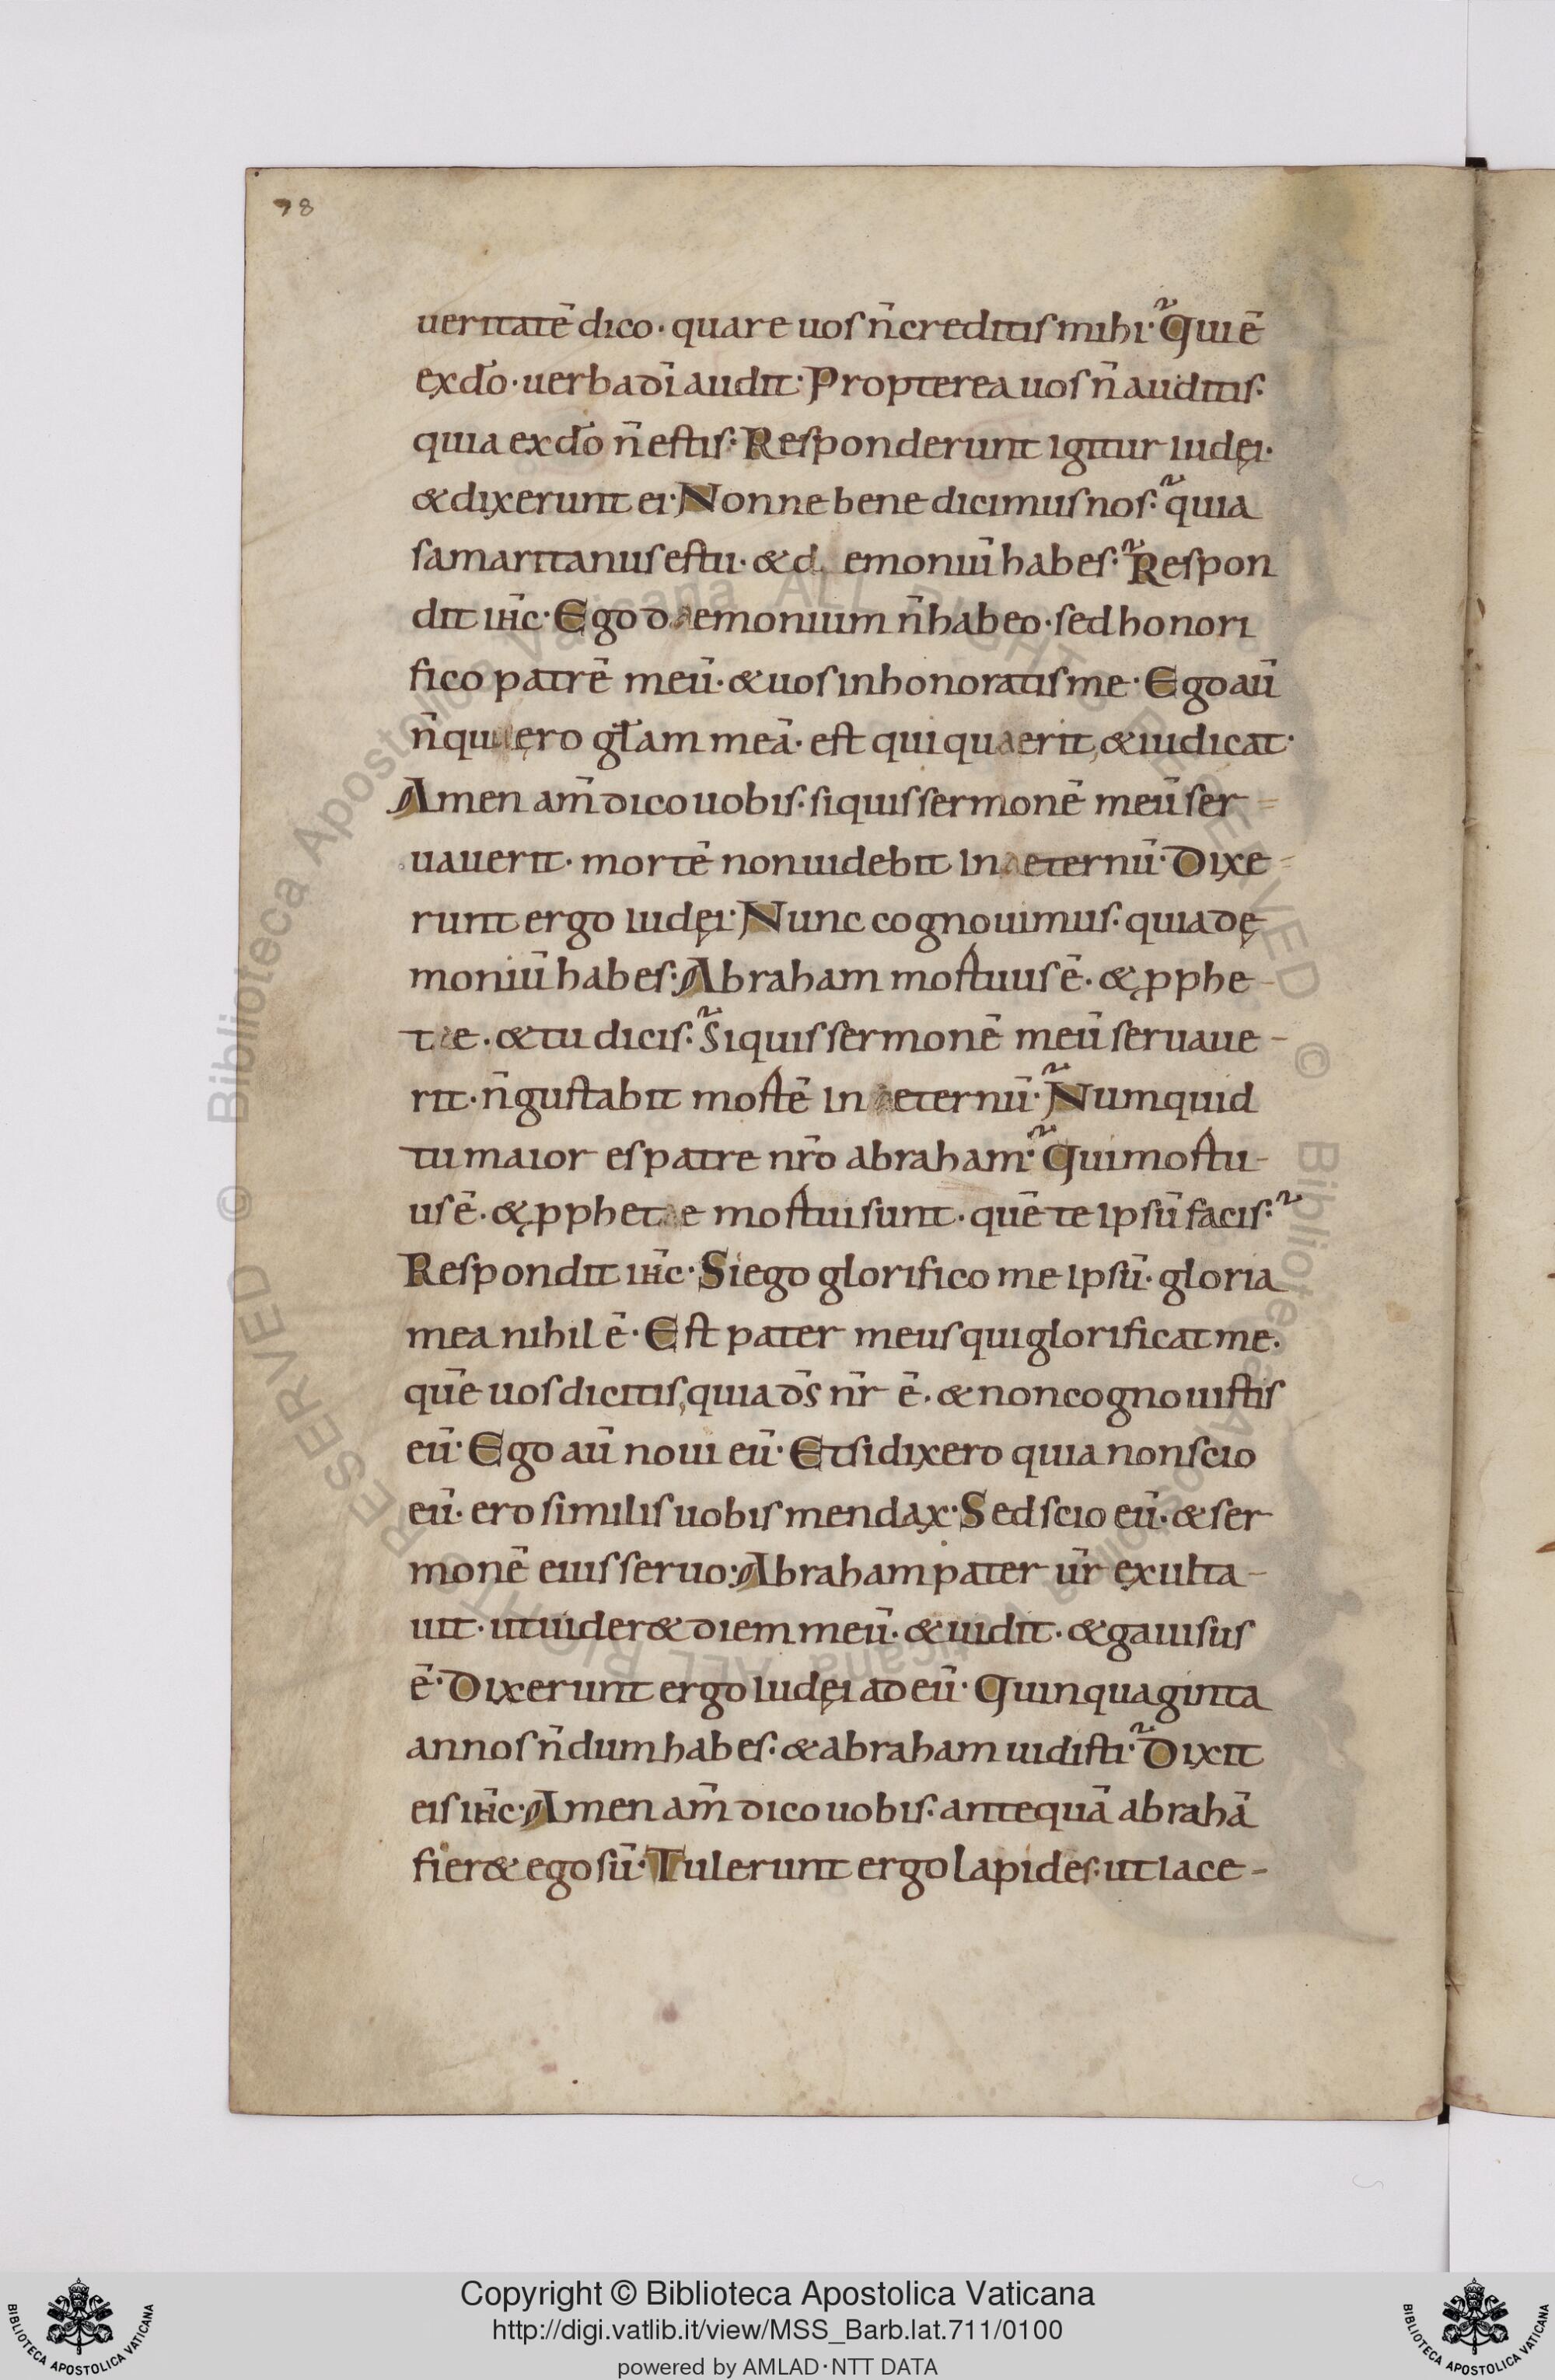 98
ueritatē dico· quare uos n̄ creditis mihi·̃ Qui ē
ex dō· uerba dī audit· Propterea uos n̄ auditis·
quia ex dō n̄ estis· Responderunt igitur iudęi·
& dixerunt ei· Nonne bene dicimus nos·̃ quia
samaritanus es tu· & d emoniū habes·̃ Respon
dit ihc̄· Ego daemonium n̄ habeo· sed honori
fico patrē meū· & uos inhonoratis me· Ego aū
n̄ quęro gl̄am meā· est qui quaerit, & iudicat·
Amen am̄ dico uobis· siquis sermonē meū ser-
uauerit· mortē non uidebit in aeternū· Dixe-
runt ergo iudęi· Nunc cognouimus· quia dę
moniū habes· Abraham mortuus ē· & pphe-
tae· & tu dicis·̃ Siquis sermonē meū seruaue-
rit· n̄ gustabit mortē in aeternū·̃ Numquid
tu maior es patre nr̄o abraham·̃ Qui mortu-
us ē· & pphetae mortui sunt· quē te ipsū facis·̃
Respondit ihc̄· Si ego glorifico me ipsū· gloria
mea nihil ē· Est pater meus qui glorificat me·
quē uos dicitis, quia ds̄ nr̄ ē· & non cognouistis
eū· Ego aū noui eū· Et si dixero quia non scio
eū· ero similis uobis mendax· Sed scio eū· & ser
monē eius seruo· Abraham pater ur̄ exulta-
uit· ut uider& diem meū· & uidit· & gauisus
ē· Dixerunt ergo iudęi ad eū· Quinquaginta
annos n̄dum habes· & abraham uidisti·̃ Dixit
eis ihc̄· Amen am̄ dico uobis· antequā abrahā
fier& ego sū· Tulerunt ergo lapides· ut iace-
© Biblioteca Apostolica Vaticana ALL RIGHTS RESERVED
© Biblioteca Apostolica Vaticana ALL RIGHTS RESERVED
Copyright © Biblioteca Apostolica Vaticana
http://digi.vatlib.it/view/MSS_Barb.lat.711/0100
powered by AMLAD·NTT DATA
BIBLIOTECA APOSTOLICA VATICANA
BIBLIOTECA APOSTOLICA VATICANA